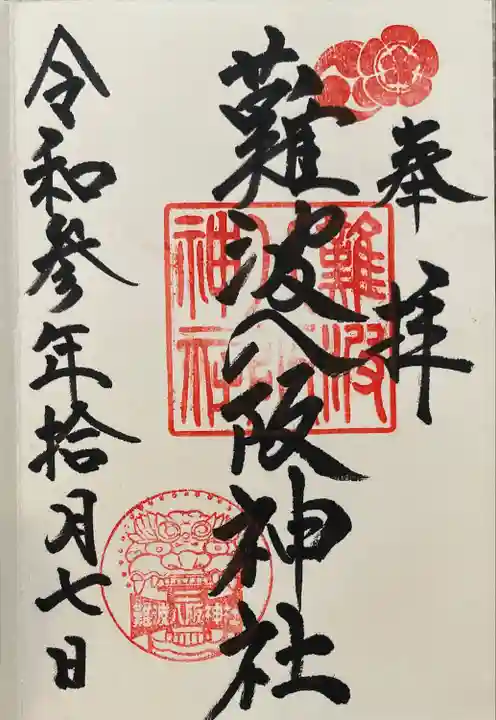 奉拝
難波八阪神社
難波八阪神社
令和参年拾月七日
難波八阪神社